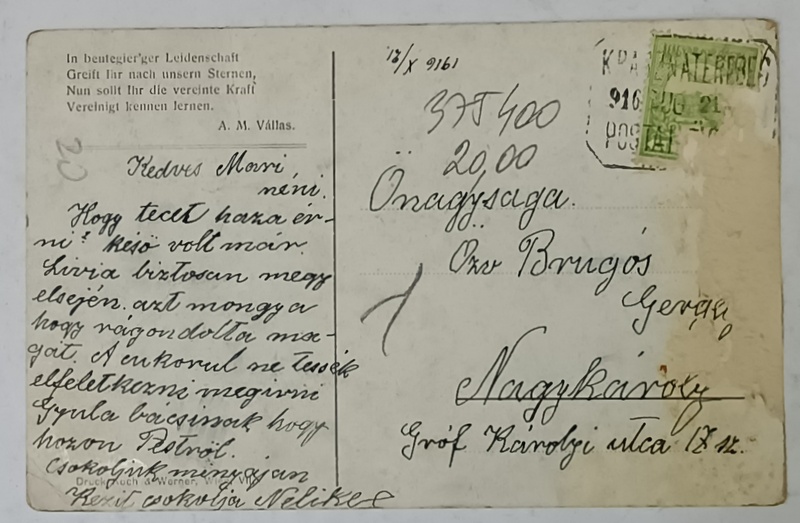 In beutegier'ger Leidenschaft
Greift Ihr nach unsern Sternen,
Nun sollt Ihr die vereinte Kraft
Vereinigt kennen lernen.
A. M. Vállas.
20
Kedves Mari
néni.
Hogy tecet haza ér-
ni? késö volt már.
Livia biztosan megy
elsején. azt mongya
hogy rágondolta ma-
gát. A cukorul ne tessék
elfeletkezni megirni
Gyula bacsinak hogy
hozon Peströl.
Csokoljuk mindájan
Kezit csokolja Nelike
Druck Koch & Werner, Wien VII
12/X 9161
375 400
20,00
916 AUG 21
Önagysaga.
Özv Brugós
Gergely
Nagykároly
Gróf Károlyi utca 17 sz.